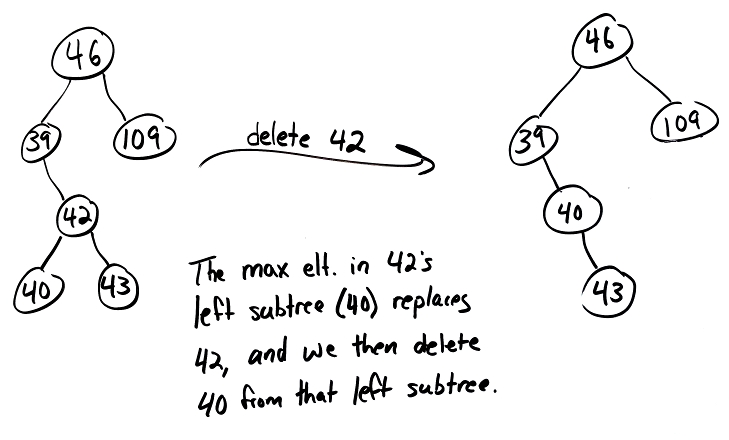 46
46
39
109
delete 42
39
109
42
40
40
43
43
The max elt. in 42's
left subtree (40) replaces
42, and we then delete
40 from that left subtree.